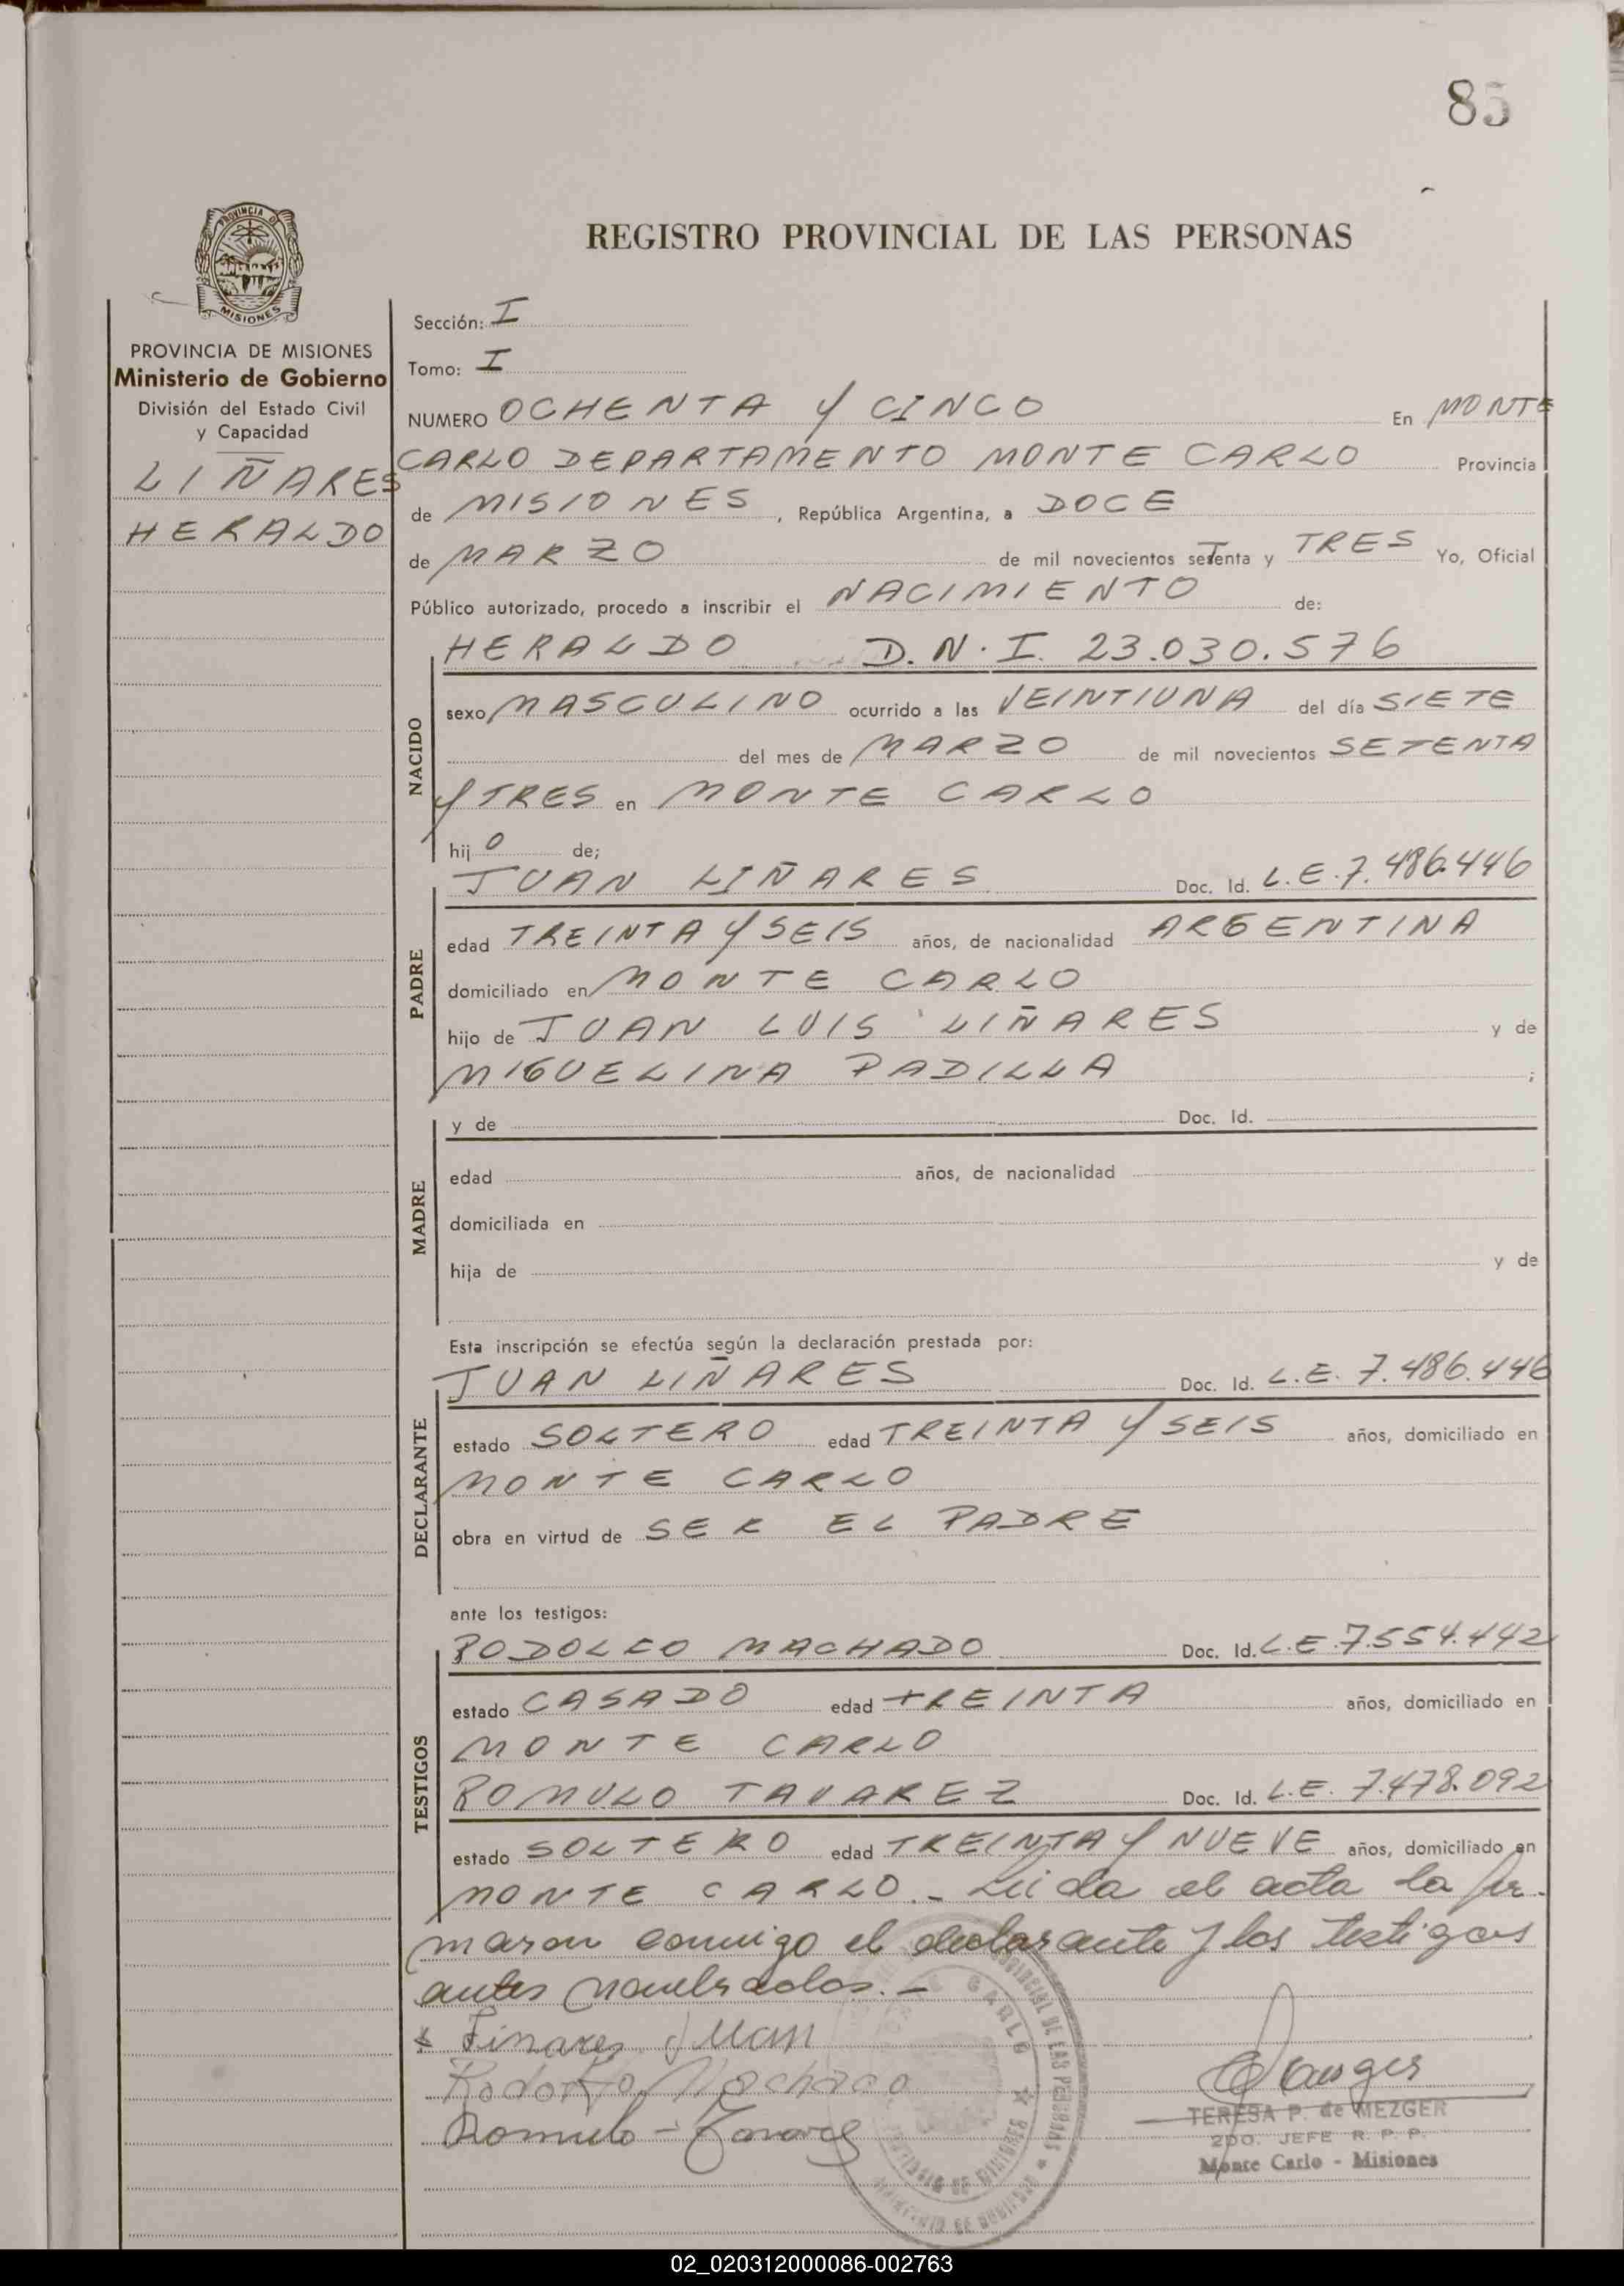 85
REGISTRO PROVINCIAL DE LAS PERSONAS
PROVINCIA DE
MISIONES
PROVINCIA DE MISIONES
Ministerio de Gobierno
División del Estado Civil
y Capacidad
LIÑARES
HERALDO
Sección: I
Tomo: I
NUMERO OCHENTA Y CINCO En MONTE
CARLO DEPARTAMENTO MONTE CARLO Provincia
de MISIONES, República Argentina, a DOCE
de MARZO de mil novecientos setenta y TRES Yo, Oficial
Público autorizado, procedo a inscribir el NACIMIENTO de:
HERALDO D.N.I. 23.030.576
NACIDO
sexo MASCULINO ocurrido a las VEINTIUNA del día SIETE
del mes de MARZO de mil novecientos SETENTA
Y TRES en MONTE CARLO
hijo de;
JUAN LIÑARES Doc. Id. L.E. 7.486.446
PADRE
edad TREINTA Y SEIS años, de nacionalidad ARGENTINA
domiciliado en MONTE CARLO
hijo de JUAN LUIS LIÑARES y de
MIGUELINA PADILLA ;
y de Doc. Id.
MADRE
edad años, de nacionalidad
domiciliada en
hija de y de
Esta inscripción se efectúa según la declaración prestada por:
JUAN LIÑARES Doc. Id. L.E. 7.486.446
DECLARANTE
estado SOLTERO edad TREINTA Y SEIS años, domiciliado en
MONTE CARLO
obra en virtud de SER EL PADRE
ante los testigos:
RODOLFO MACHADO Doc. Id. L.E. 7.554.442
TESTIGOS
estado CASADO edad TREINTA años, domiciliado en
MONTE CARLO
ROMULO TAVAREZ Doc. Id. L.E. 7.478.092
estado SOLTERO edad TREINTA Y NUEVE años, domiciliado en
MONTE CARLO.- Leida el acta la fir-
maron conmigo el declarante y los testigos
antes nombrados.-
x Linares Juan
Rodolfo Machado
Romulo - Tavarez
MONTE CARLO
TERESA P. de MEZGER
2DO. JEFE R. P. P.
Monte Carlo - Misiones
02_020312000086-002763